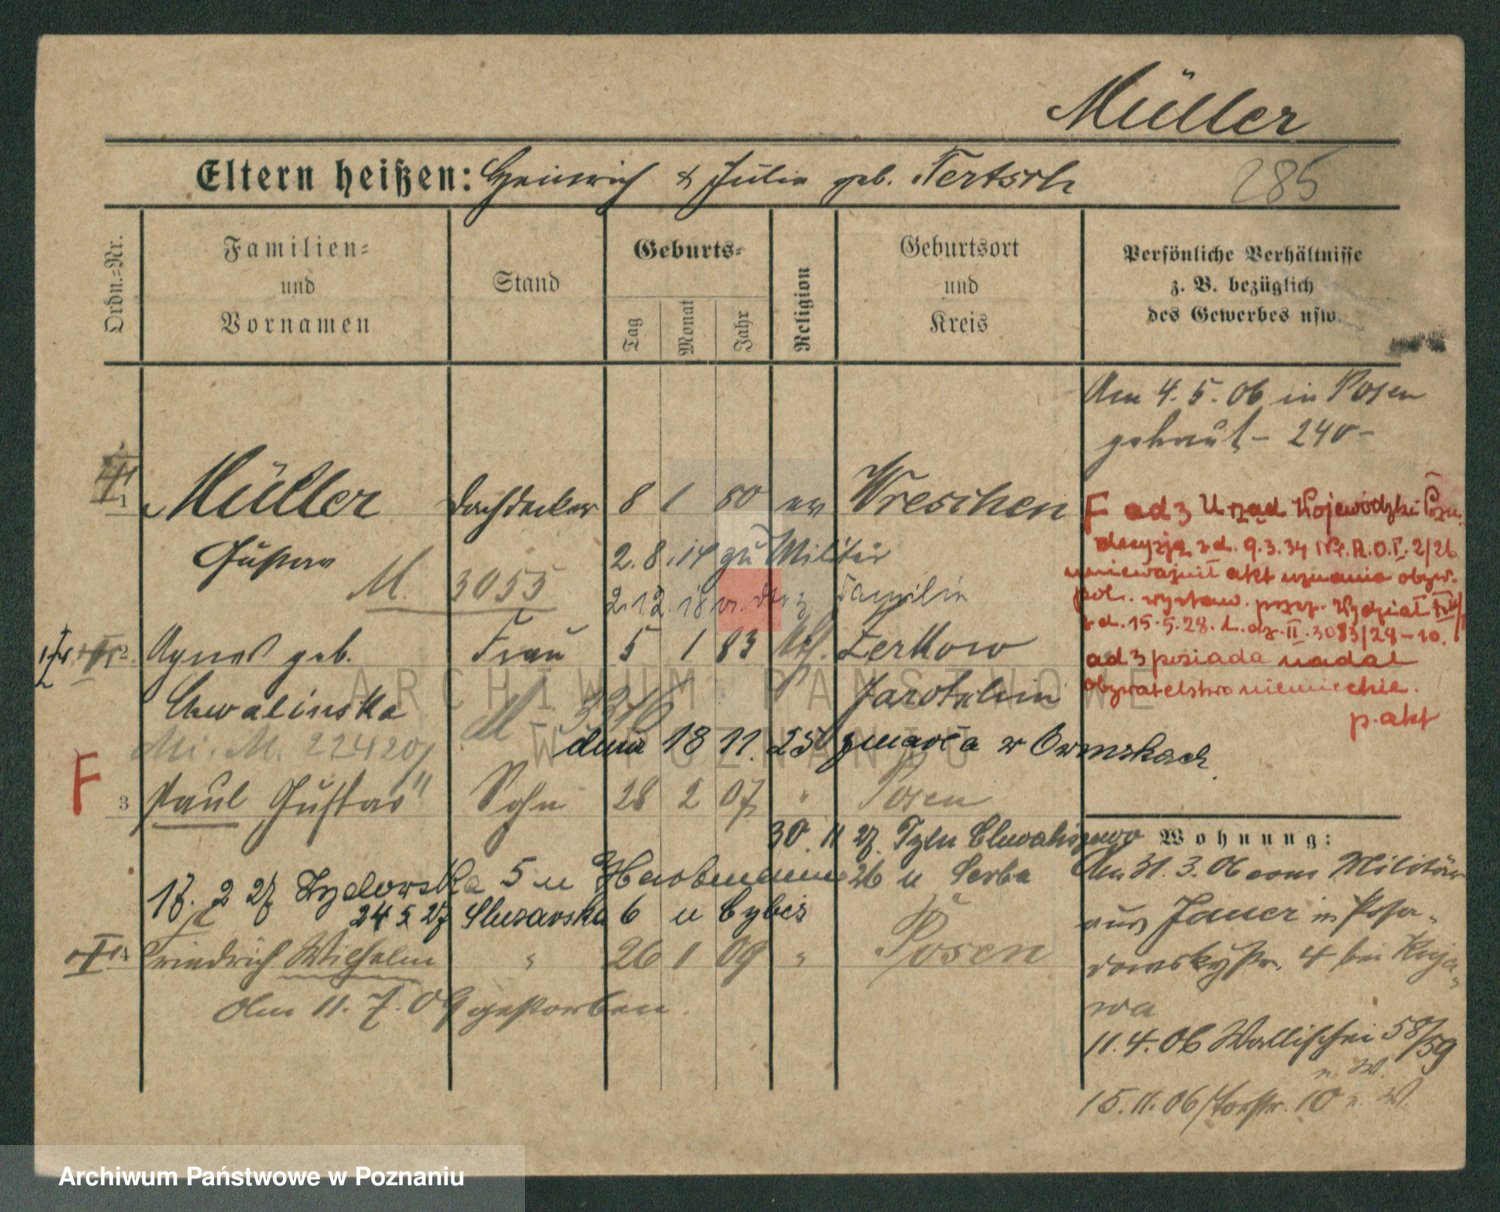 Müller
Eltern heißen: Heinrich & Julia geb. Tertsch
285
Ordn.=Nr.
Familien= und Vornamen
Stand
Geburts=
Tag
Monat
Jahr
Religion
Geburtsort und Kreis
Persönliche Verhältnisse
z. B. bezüglich
des Gewerbes usw.
Am 4. 5. 06 in Posen
getraut – 240 –
1 Müller Dachdecker 8 1 80 ev Wreschen
Gustav 2. 8. 14 zu Militär
M. 3055 2. 12. 18 v. z. Familie
2 Agnes geb. Frau 5 1 83 kth. Zerkow
Chwalinska M 3316 Jarotschin
Mi. M. 22420
dnia 18 11. 25 zmarła w Owinskach.
F
3 Paul Gustav Sohn 28 2 07 " Posen
30. 11 27. Tylu Chwaliszewo
17. 2 27 Zydowska 5 u 26 u Serba
24 5 27 Sluzarska 6 u Cybis
4 Friedrich Wilhelm " 26 1 09 " Posen
Am 11. 7. 09 gestorben.
F ad 3 Urząd Wojewódzki Pozn.
decyzją z d. 9. 3. 34 Nr. A. O. I. 2/26
unieważnił akt uznania obyw.
pol. wystaw. przez. Wydział
z d. 15. 5. 28. L. dz. II. 3083/28 – 10.
ad 3 posiada nadal
obywatelstwo niemieckie.
p. akt
Wohnung:
Am 31. 3. 06 vom Militär
aus Jauer in Posa-
dowskystr. 4 bei Kuja-
wa
11. 4. 06 Wallischei 58/59
n. W.
15. 11. 06 Torstr. 10 n. W.
ARCHIWUM PAŃSTWOWE
W POZNANIU
Archiwum Państwowe w Poznaniu